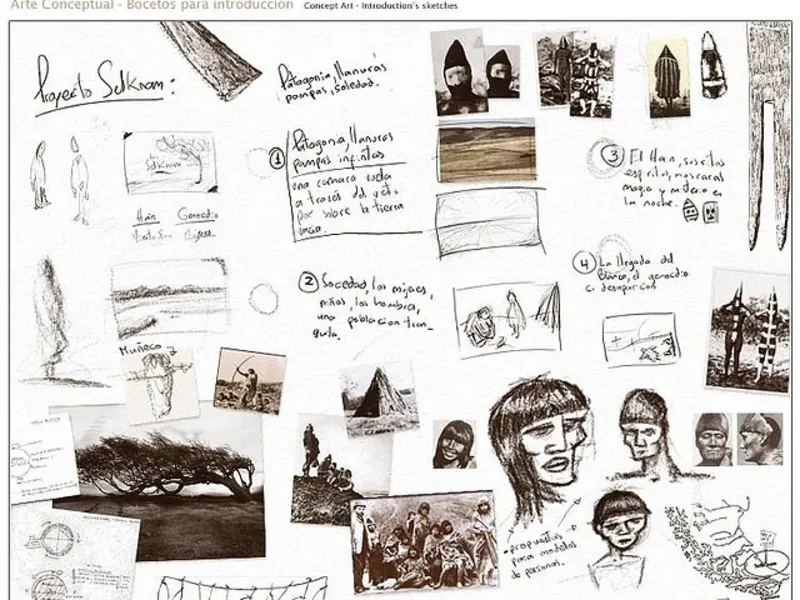 Arte Conceptual - Bocetos para introducción
Concept Art - Introduction's sketches
Proyecto Selknam:
Patagonia, llanuras
pampas, soledad.
1
Patagonia, llanuras
pampas infinitas
una camara vuela
a través del
por sobre la tierra
Selknam
Hain Genocidio
2
Sociedad, las mujeres,
niños, los hombres,
una poblacion tran-
quila.
3
El Hain, sus ritos
espiritus, mascaras
magia y misterio en
la noche.
4
La llegada del
Blanco, el genocidio
desaparicion
Muñeco
-propuestas
para modelos
de personas.